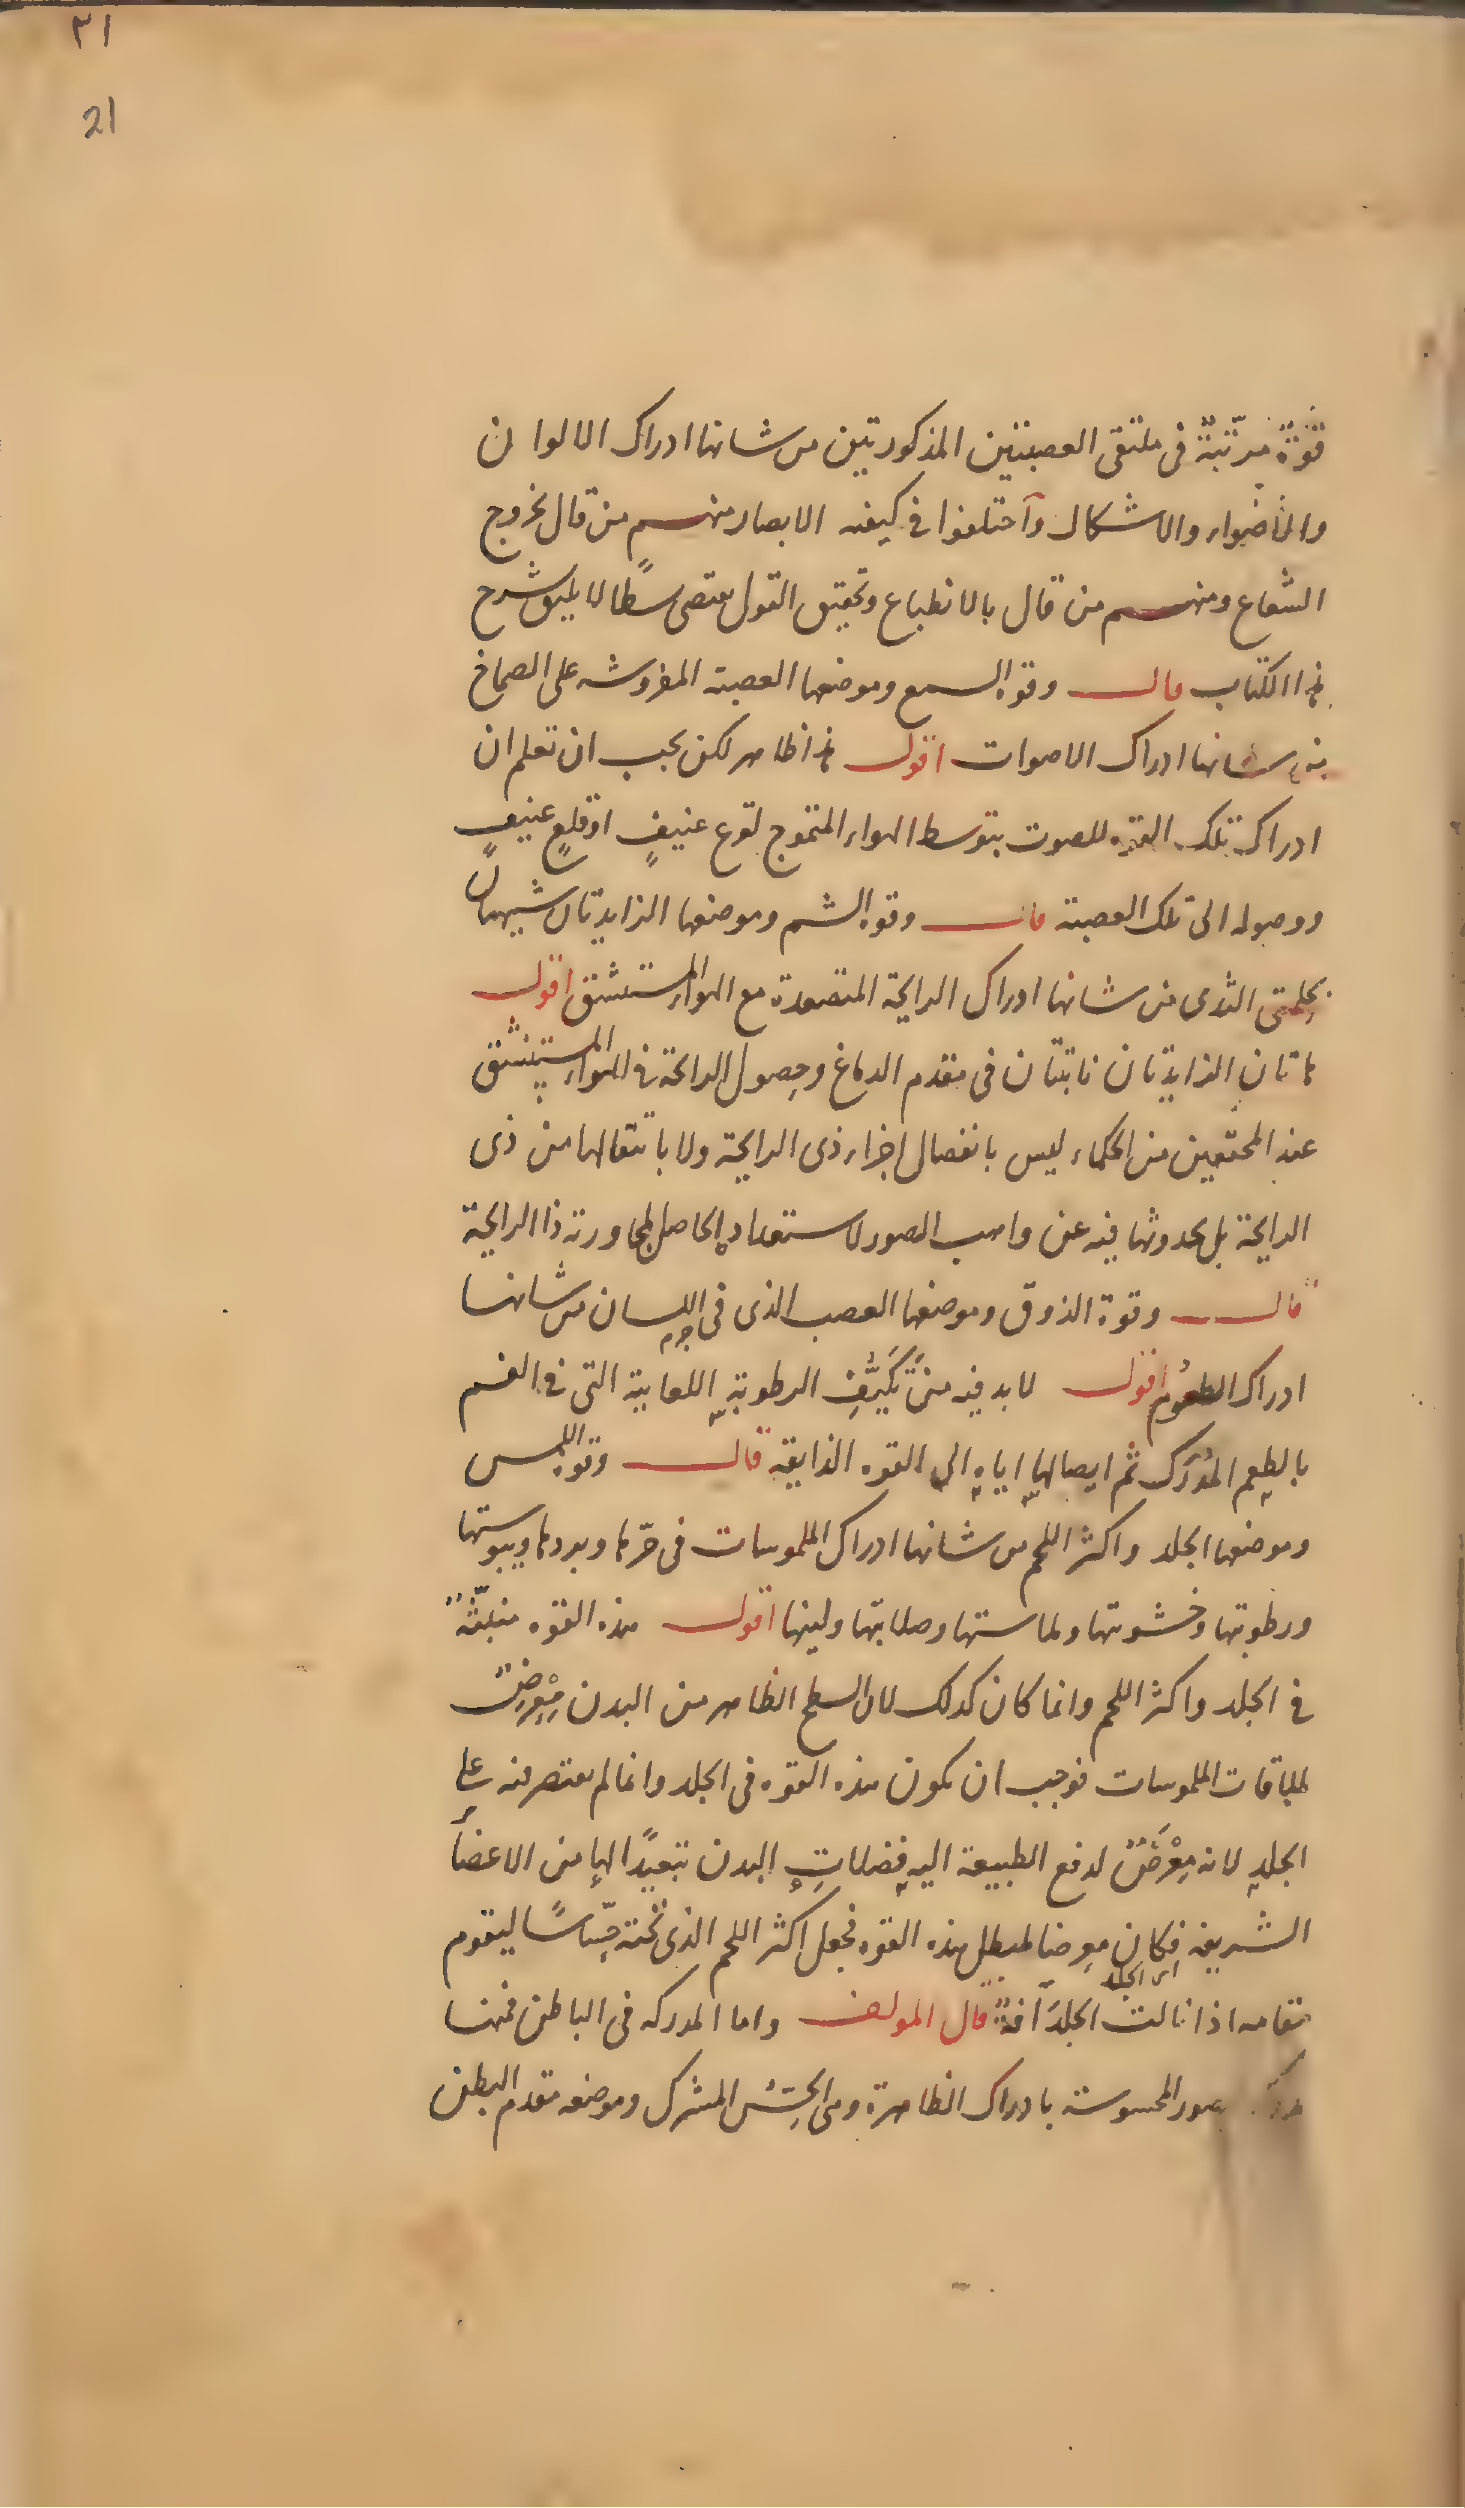 ٢١
21
قوة مرتبة فى ملتقى العصبتين المذكورتين من شانها ادراك الالوان
والاضواء والاشكال واختلفوا فى كيفيه الابصار منهم من قال بخروج
الشعاع ومنهم من قال بالانطباع وتحقيق القول يقتضى بسطًا لا يليق شرح
هذا الكتاب قال وقوة السمع وموضعها العصبة المفروشه على الصماخ
من شانها ادراك الاصوات اقول هذا ظاهر لكن يجب ان تعلم ان
ادراك تلك القوه للصوت بتوسط الهواء المتموج لقرع عنيفٍ او قلعٍ عنيفٍ
ووصوله الى تلك العصبة قال وقوة الشم وموضعها الزايدتان شبيهتان
بحلمتى الثدى من شانها ادراك الرايحة المتصعدة مع الهواء المستنشق اقول
هاتان الزايدتان نابتتان فى مقدم الدماغ وحصول الرائحة فى الهواء المستنشق
عند المحققين من الحكماء ليس بانفصال اجزاء ذى الرايحة ولا بانتقالها من ذى
الرايحة بل بحدوثها فيه عن واهب الصور لاستعداده الحاصل لمجاورته ذا الرايحة
قال وقوة الذوق وموضعها العصب الذى فى جرم اللسان من شانها
ادراك الطعوم اقول لا بد فيه من تَكَيُّفِ الرطوبةِ اللعابية التى فى الفم
بالطعم المُدرَك ثم ايصالها اياه الى القوه الذايقة قال وقوة اللمس
وموضعها الجلد واكثر اللحم من شانها ادراك الملموسات فى حرّها وبردها ويبوستها
ورطوبتها وخشونتها وملاستها وصلابتها ولينها اقول هذه القوه منبثّةٌ
فى الجلد واكثر اللحم وانما كان كذلك لان السطح الظاهر من البدن مِعْرضٌ
لملاقات الملموسات فوجب ان يكون هذه القوه فى الجلد وانما لم يقتصر منه على
الجلد لانه مِعْرَضٌ لدفع الطبيعة اليه فضلاتِ البدن تبعيدًا لها من الاعضاء
الشريفه فكان معرضا لمبطل هذه القوه فجعل اكثر اللحم الذى تحته حسّاسًا ليقوم
اى الجلد
مقامه اذا نالت الجلدَ آفةٌ قال المولف واما المدركه فى الباطن فمنها
صور المحسوسة بادراك الظاهرة وهى الحِسّ المشترك وموضعه مقدم البطن